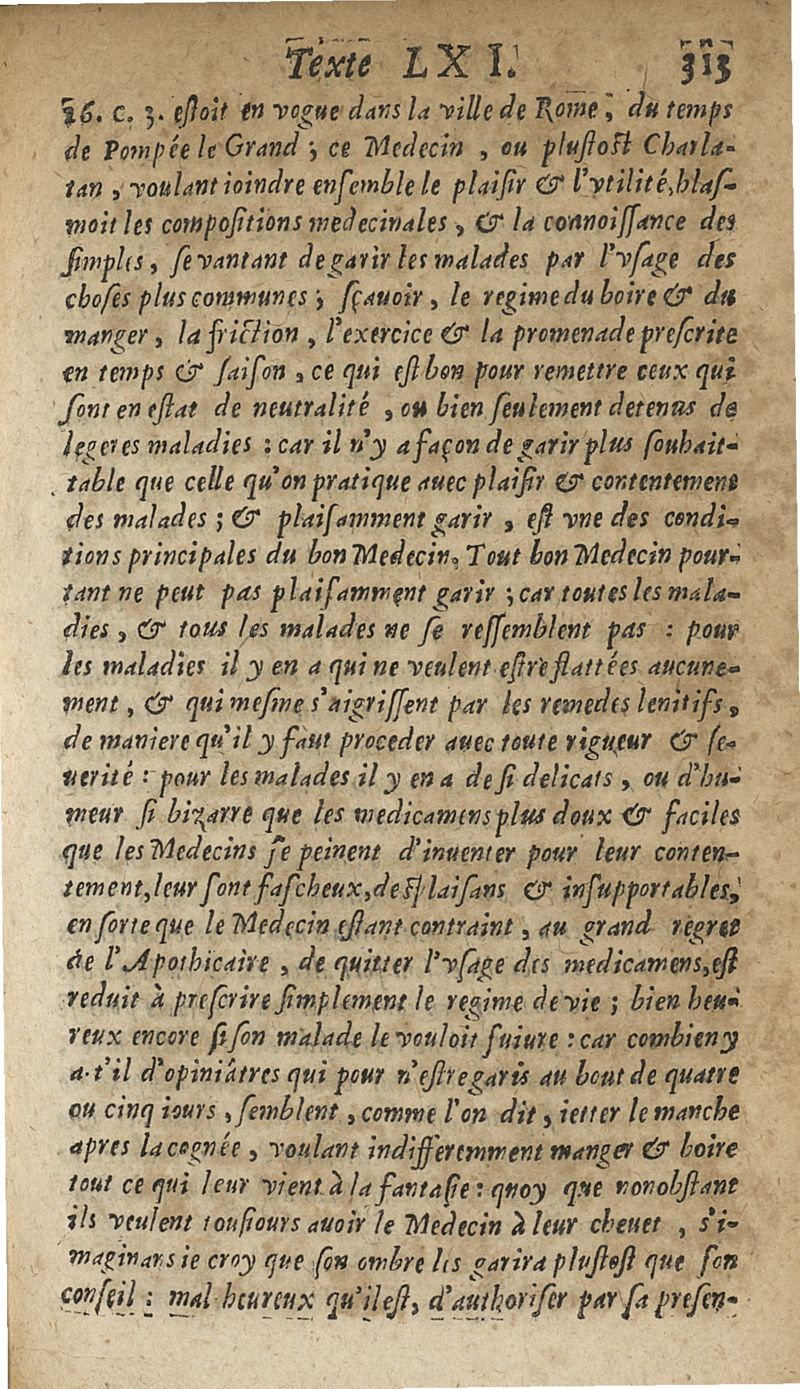 Texte LXI. 313
26. c. 3. estoit en vogue dans la ville de Rome, du temps
de Pompée le Grand; ce Medecin, ou plustost Charla-
tan, voulant ioindre ensemble le plaisir & l'vtilité, blas-
moit les compositions medecinales, & la connoissance des
simples, se vantant de garir les malades par l'vsage des
choses plus communes; sçavoir, le regime du boire & du
manger, la friction, l'exercice & la promenade prescrite
en temps & saison, ce qui est bon pour remettre ceux qui
sont en estat de neutralité, ou bien seulement detenus de
legeres maladies: car il n'y a façon de garir plus souhait-
table que celle qu'on pratique auec plaisir & contentement
des malades; & plaisamment garir, est vne des condi-
tions principales du bon Medecin. Tout bon Medecin pour-
tant ne peut pas plaisamment garir; car toutes les mala-
dies, & tous les malades ne se ressemblent pas: pour
les maladies il y en a qui ne veulent estre flattées aucune-
ment, & qui mesme s'aigrissent par les remedes lenitifs,
de maniere qu'il y faut proceder auec toute rigueur & se-
uerité: pour les malades il y en a de si delicats, ou d'hu-
meur si bizarre que les medicamens plus doux & faciles
que les Medecins se peinent d'inuenter pour leur conten-
tement, leur sont fascheux, desplaisans & insupportables,
en sorte que le Medecin estant contraint, au grand regret
de l'Apothicaire, de quitter l'vsage des medicamens, est
reduit à prescrire simplement le regime de vie; bien heu-
reux encore si son malade le vouloit suiure: car combien y
a-t'il d'opiniâtres qui pour n'estre garis au bout de quatre
ou cinq iours, semblent, comme l'on dit, ietter le manche
apres la cognée, voulant indifferemment manger & boire
tout ce qui leur vient à la fantasie: quoy que nonobstant
ils veulent tousiours auoir le Medecin à leur cheuet, s'i-
maginans ie croy que son ombre les garira plustost que son
conseil: mal heureux qu'il est, d'authoriser par sa presen-